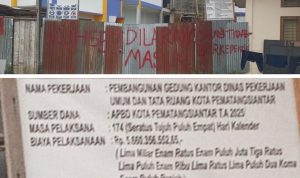 DILARANG
MASUK
NAMA PEKERJAAN : PEMBANGUNAN GEDUNG KANTOR DINAS PEKERJAAN
UMUM DAN TATA RUANG KOTA PEMATANGSIANTAR
SUMBER DANA : APBD KOTA PEMATANGSIANTAR T.A 2025
MASA PELAKSANA : 174 (Seratus Tujuh Puluh Empat) Hari Kalender
BIAYA PELAKSANAAN : Rp. 5.660.356.552,65,-
( Lima Miliar Enam Ratus Enam Puluh Juta Tiga Ratus
Lima Puluh Enam Ribu Lima Ratus Lima Puluh Dua Koma